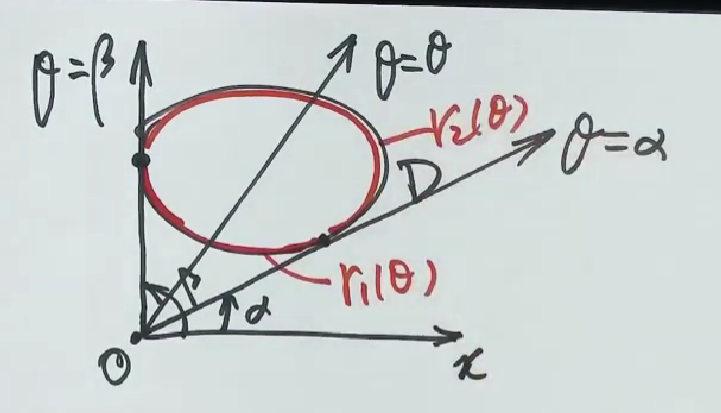 θ=β
θ=θ
r₂(θ)
θ=α
D
β
r₁(θ)
α
O
x